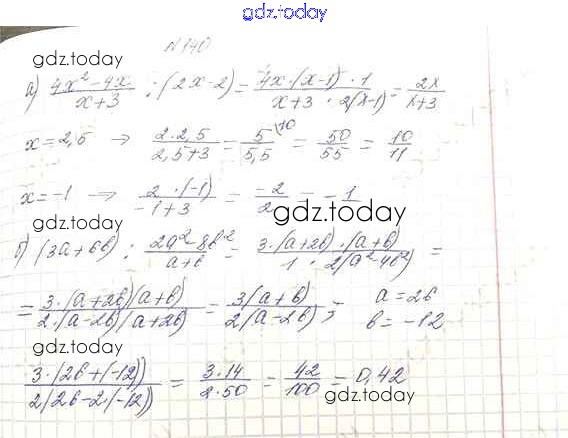 gdz.today
№140
gdz.today
а) (4x² - 4x)/(x+3) : (2x-2) = (4x·(x-1)·1)/(x+3 · 2(x-1)) = 2x/(x+3)
x = 2,5 → (2·2,5)/(2,5+3) = 5/5,5 \10 = 50/55 = 10/11
x = -1 → (2·(-1))/(-1+3) = -2/2 = -1
gdz.today
gdz.today
б) (3a+6b) : (2a²-8b²)/(a+b) = (3·(a+2b)·(a+b))/(1·2(a²-4b²)) =
= (3·(a+2b)(a+b))/(2·(a-2b)(a+2b)) = 3(a+b)/(2(a-2b)); a = 26
b = -12
gdz.today
(3·(26+(-12)))/(2(26-2·(-12))) = (3·14)/(2·50) = 42/100 = 0,42
gdz.today